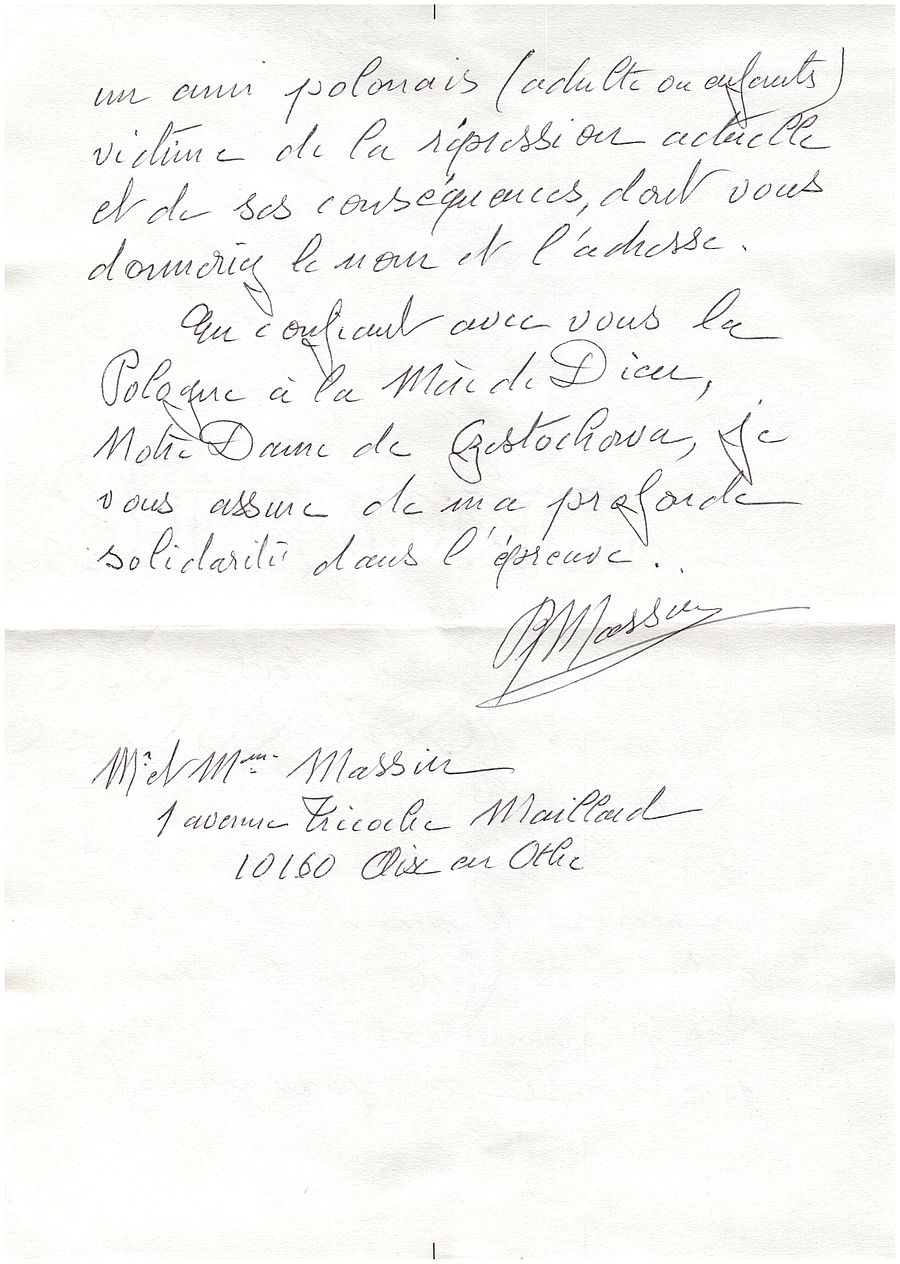 un ami polonais (adulte ou enfants)
victime de la répression actuelle
et de ses conséquences, dont vous
donneriez le nom et l'adresse.
En confiant avec vous la
Pologne à la Mère de Dieu,
Notre Dame de Czestochowa, je
vous assure de ma profonde
solidarité dans l'épreuve..
PMassin
Mr et Mme Massin
1 avenue Tricoche Maillard
10160 Aix en Othe